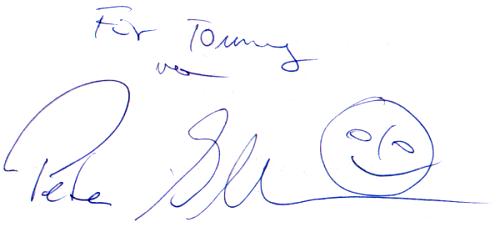 Für Tommy
von
Peter